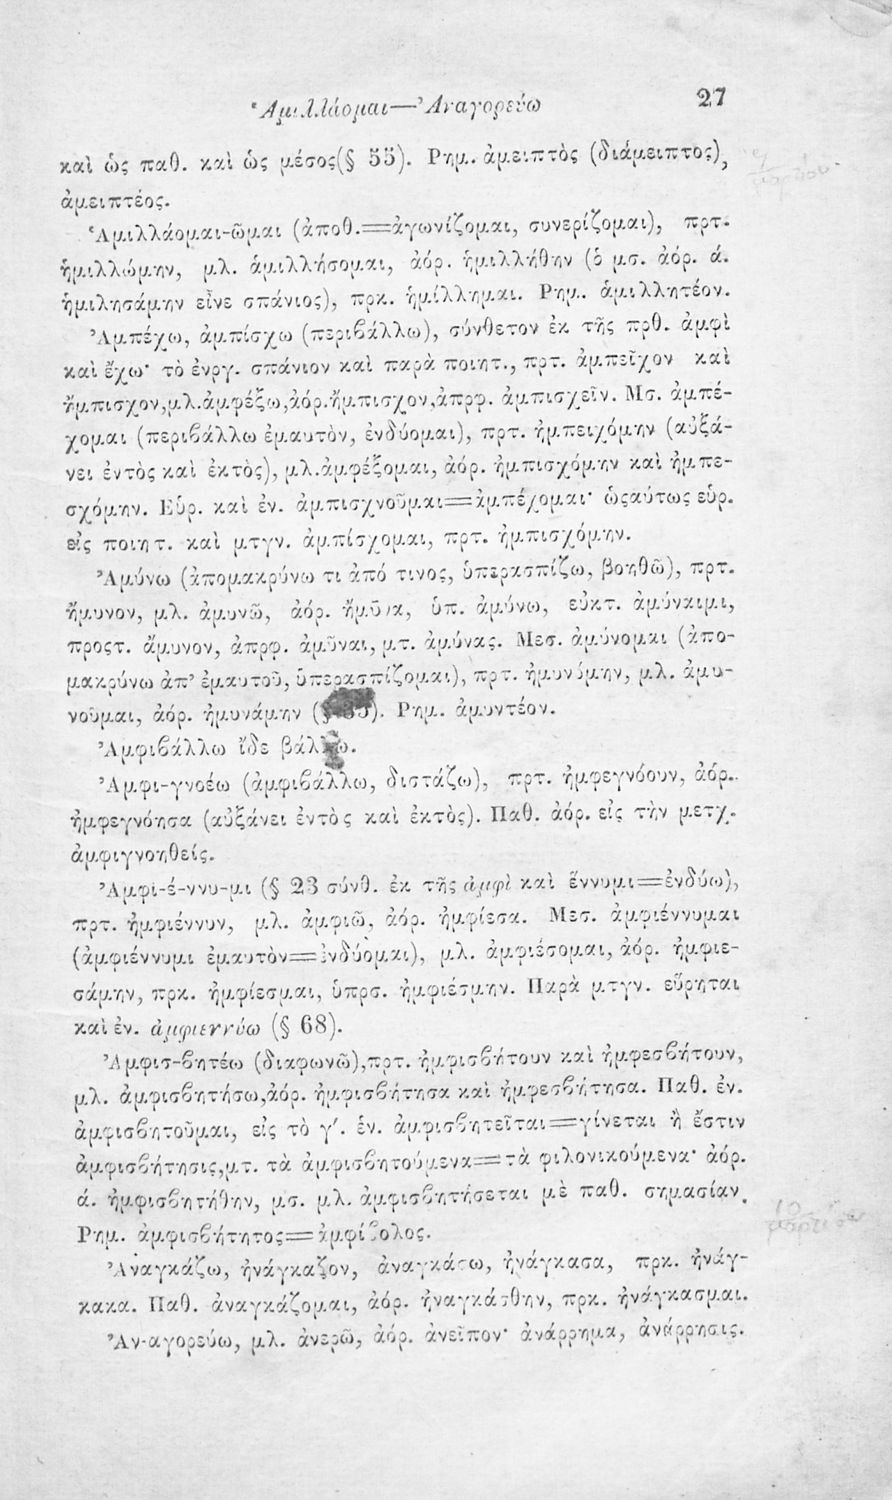 Ἁμιλλάομαι—Ἀναγορεύω 27
καὶ ὡς παθ. καὶ ὡς μέσος(§ 55). Ρημ. ἀμειπτὸς (διάμειπτος),
ἀμειπτέος.
Ἁμιλλάομαι-ῶμαι (ἀποθ.=ἀγωνίζομαι, συνερίζομαι), πρτ.
ἡμιλλώμην, μλ. ἁμιλλήσομαι, ἀόρ. ἡμιλλήθην (ὁ μσ. ἀόρ. ά.
ἡμιλησάμην εἶνε σπάνιος), πρκ. ἡμίλλημαι. Ρημ. ἁμιλλητέον.
Ἀμπέχω, ἀμπίσχω (περιβάλλω), σύνθετον ἐκ τῆς πρθ. ἀμφὶ
καὶ ἔχω· τὸ ἐνργ. σπάνιον καὶ παρὰ ποιητ., πρτ. ἀμπεῖχον καὶ
ἤμπισχον,μλ.ἀμφέξω,ἀόρ.ἤμπισχον,ἀπρφ. ἀμπισχεῖν. Μσ. ἀμπέ-
χομαι (περιβάλλω ἐμαυτὸν, ἐνδύομαι), πρτ. ἠμπειχόμην (αὐξά-
νει ἐντὸς καὶ ἐκτὸς), μλ.ἀμφέξομαι, ἀόρ. ἠμπισχόμην καὶ ἠμπε-
σχόμην. Εὑρ. καὶ ἐν. ἀμπισχνοῦμαι=ἀμπέχομαι· ὡςαύτως εὑρ.
εἰς ποιητ. καὶ μτγν. ἀμπίσχομαι, πρτ. ἠμπισχόμην.
Ἀμύνω (ἀπομακρύνω τι ἀπό τινος, ὑπερασπίζω, βοηθῶ), πρτ.
ἤμυνον, μλ. ἀμυνῶ, ἀόρ. ἤμῡνα, ὑπ. ἀμύνω, εὐκτ. ἀμύναιμι,
προςτ. ἄμυνον, ἀπρφ. ἀμῦναι, μτ. ἀμύνας. Μεσ. ἀμύνομαι (ἀπο-
μακρύνω ἀπ' ἐμαυτοῦ, ὑπερασπίζομαι), πρτ. ἠμυνόμην, μλ. ἀμυ-
νοῦμαι, ἀόρ. ἠμυνάμην (§ ). Ρημ. ἀμυντέον.
Ἀμφιβάλλω ἴδε βάλλω.
Ἀμφι-γνοέω (ἀμφιβάλλω, διστάζω), πρτ. ἠμφεγνόουν, ἀόρ.
ἠμφεγνόησα (αὐξάνει ἐντὸς καὶ ἐκτὸς). Παθ. ἀόρ. εἰς τὴν μετχ.
ἀμφιγνοηθείς.
Ἀμφι-έ-ννυ-μι (§ 23 σύνθ. ἐκ τῆς ἀμφὶ καὶ ἕννυμι=ἐνδύω),
πρτ. ἠμφιέννυν, μλ. ἀμφιῶ, ἀόρ. ἠμφίεσα. Μεσ. ἀμφιέννυμαι
(ἀμφιέννυμι ἐμαυτὸν=ἐνδύομαι), μλ. ἀμφιέσομαι, ἀόρ. ἠμφιε-
σάμην, πρκ. ἠμφίεσμαι, ὑπρσ. ἠμφιέσμην. Παρὰ μτγν. εὕρηται
καὶ ἐν. ἀμφιεννύω (§ 68).
Ἀμφισ-βητέω (διαφωνῶ),πρτ. ἠμφισβήτουν καὶ ἠμφεσβήτουν,
μλ. ἀμφισβητήσω,ἀόρ. ἠμφισβήτησα καὶ ἠμφεσβήτησα. Παθ. ἐν.
ἀμφισβητοῦμαι, εἰς τὸ γ′. ἑν. ἀμφισβητεῖται=γίνεται ἢ ἔστιν
ἀμφισβήτησις,μτ. τὰ ἀμφισβητούμενα=τὰ φιλονικούμενα· ἀόρ.
ά. ἠμφισβητήθην, μσ. μλ. ἀμφισβητήσεται μὲ παθ. σημασίαν.
Ρημ. ἀμφισβήτητος=ἀμφίβολος.
Ἀναγκάζω, ἠνάγκαζον, ἀναγκάσω, ἠνάγκασα, πρκ. ἠνάγ-
κακα. Παθ. ἀναγκάζομαι, ἀόρ. ἠναγκάσθην, πρκ. ἠνάγκασμαι.
Ἀν-αγορεύω, μλ. ἀνερῶ, ἀόρ. ἀνεῖπον· ἀνάρρημα, ἀνάρρησις.